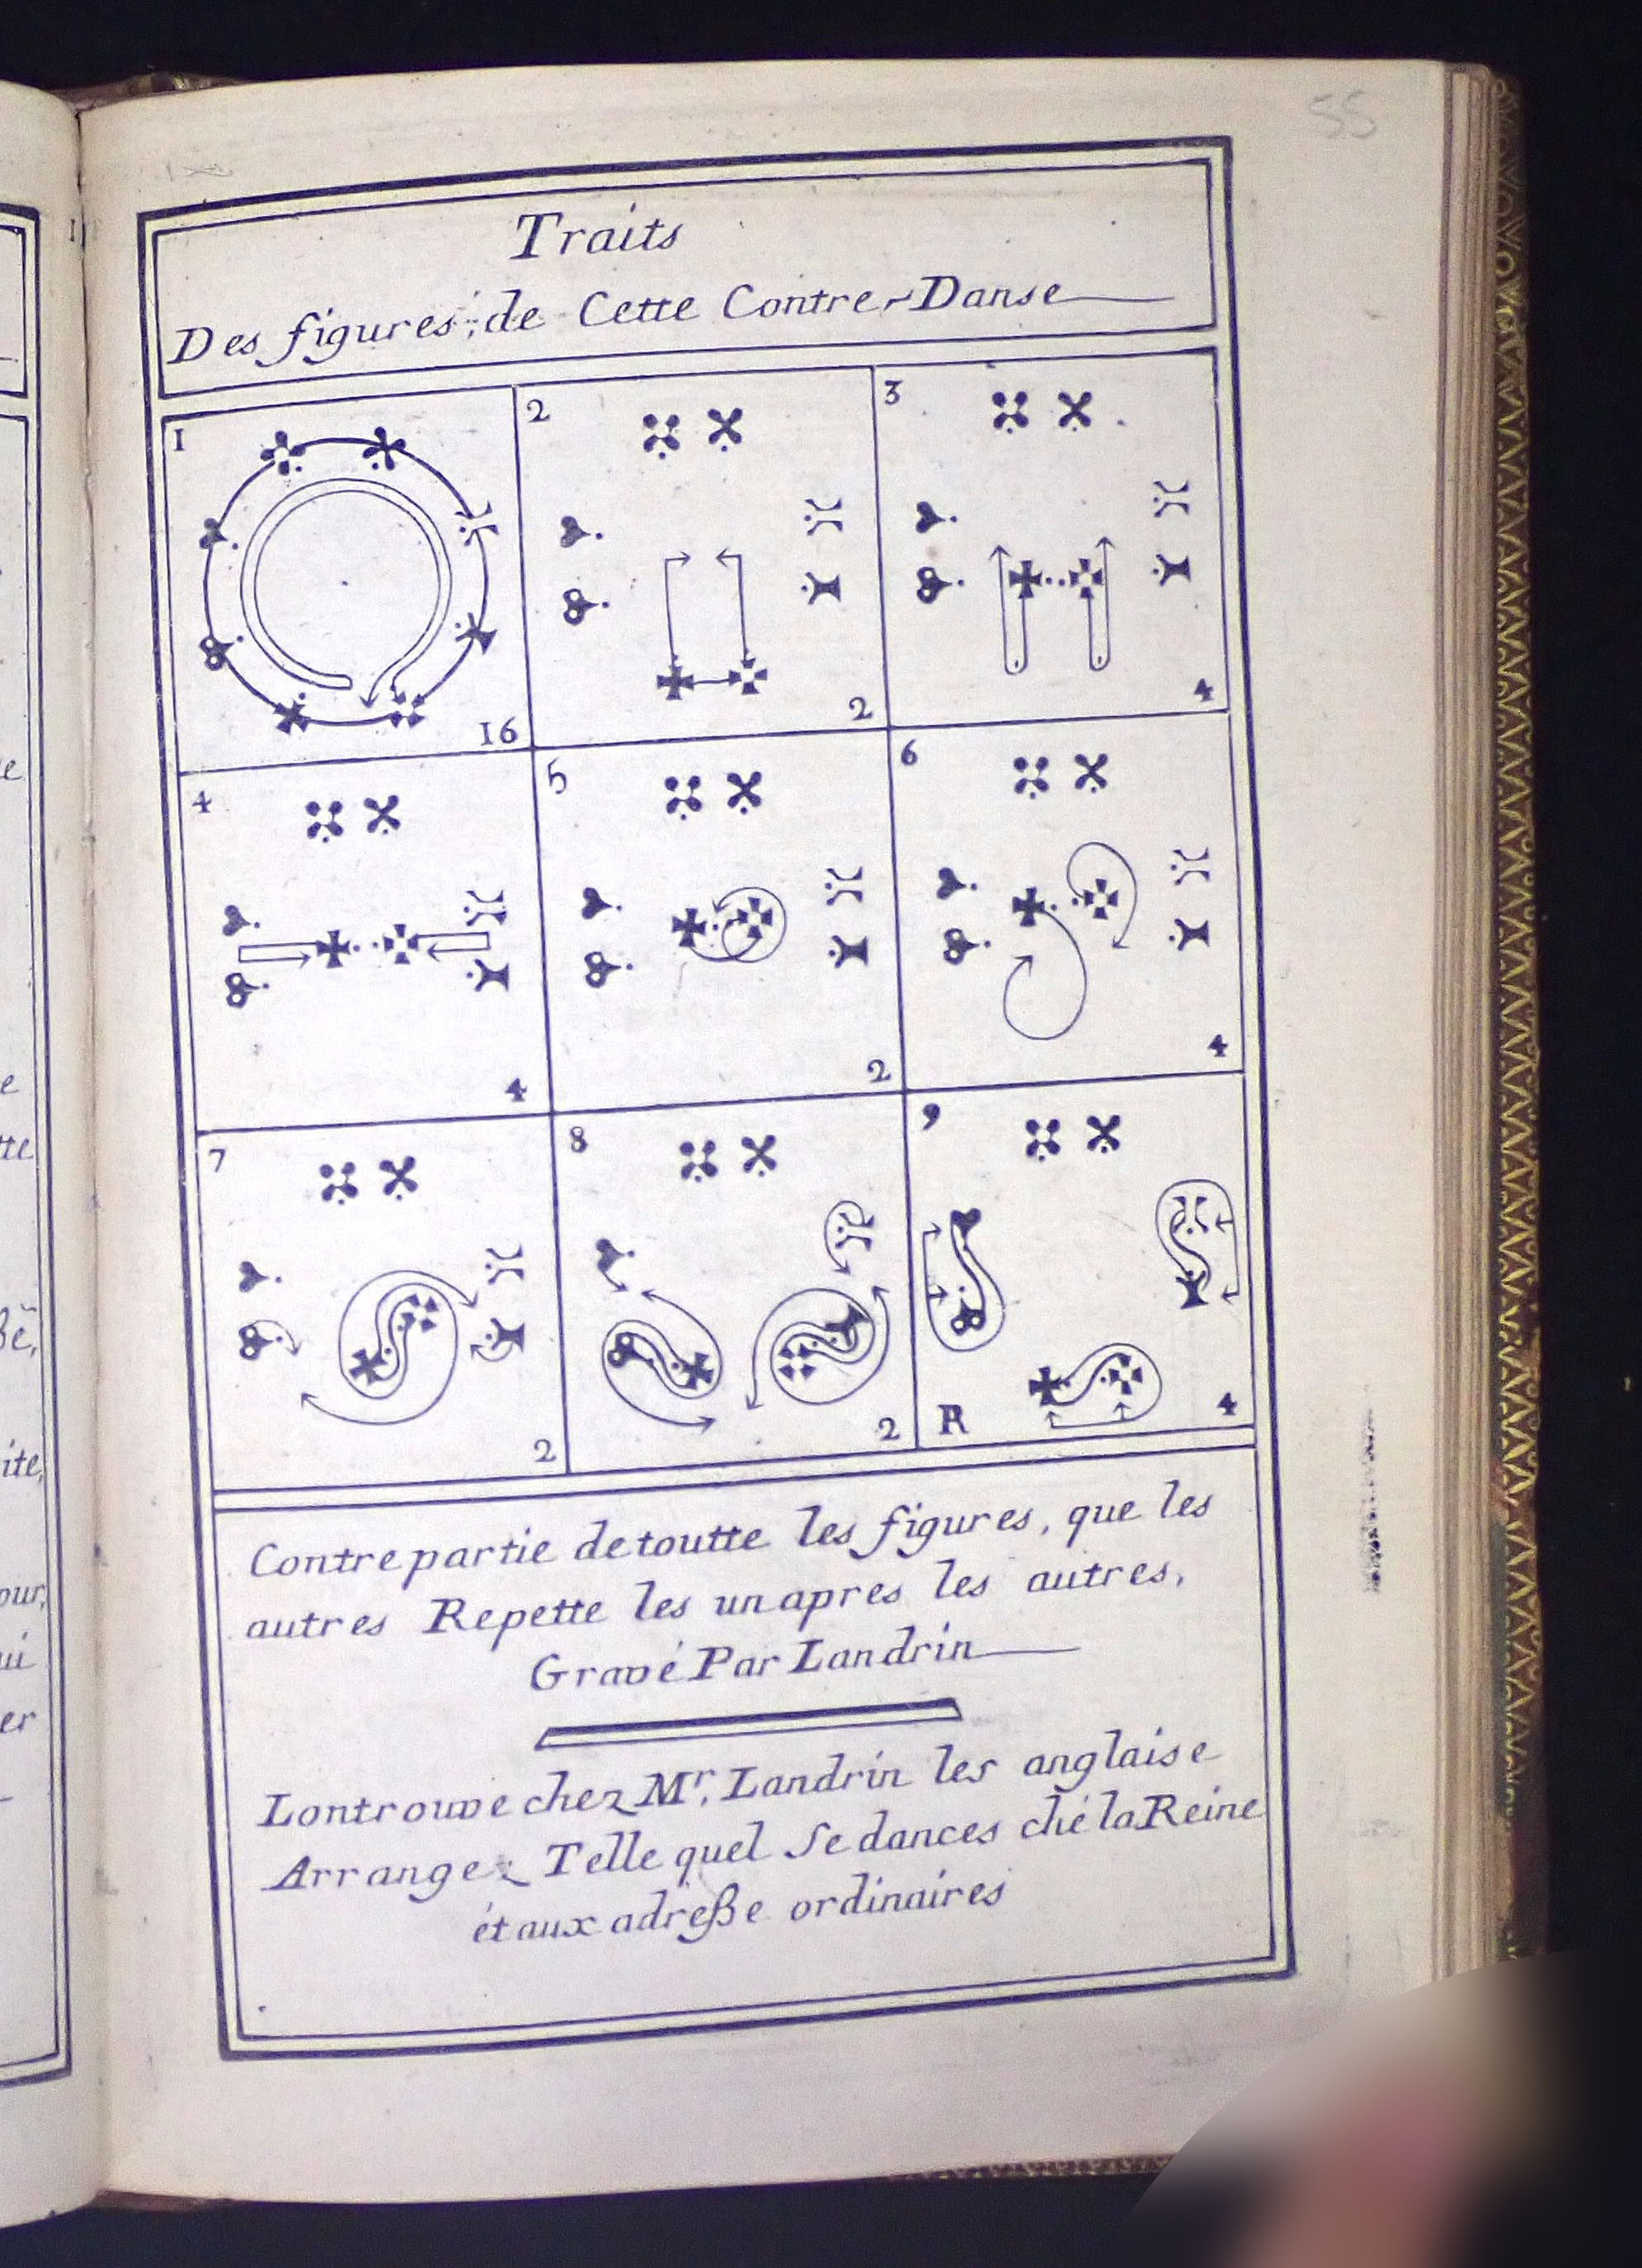 55
Traits
Des figures, de Cette Contre-Danse
1
16
2
2
3
4
4
4
5
2
6
4
7
2
8
2
9
R
4
Contrepartie detoutte les figures, que les
autres Repette les unapres les autres,
Gravé Par Landrin
Lontrouve chez Mr. Landrin les anglaise
Arrangez Telle quel Se dances ché la Reine
ét aux adreße ordinaires
e
e
tte
ite,
our,
ui
er